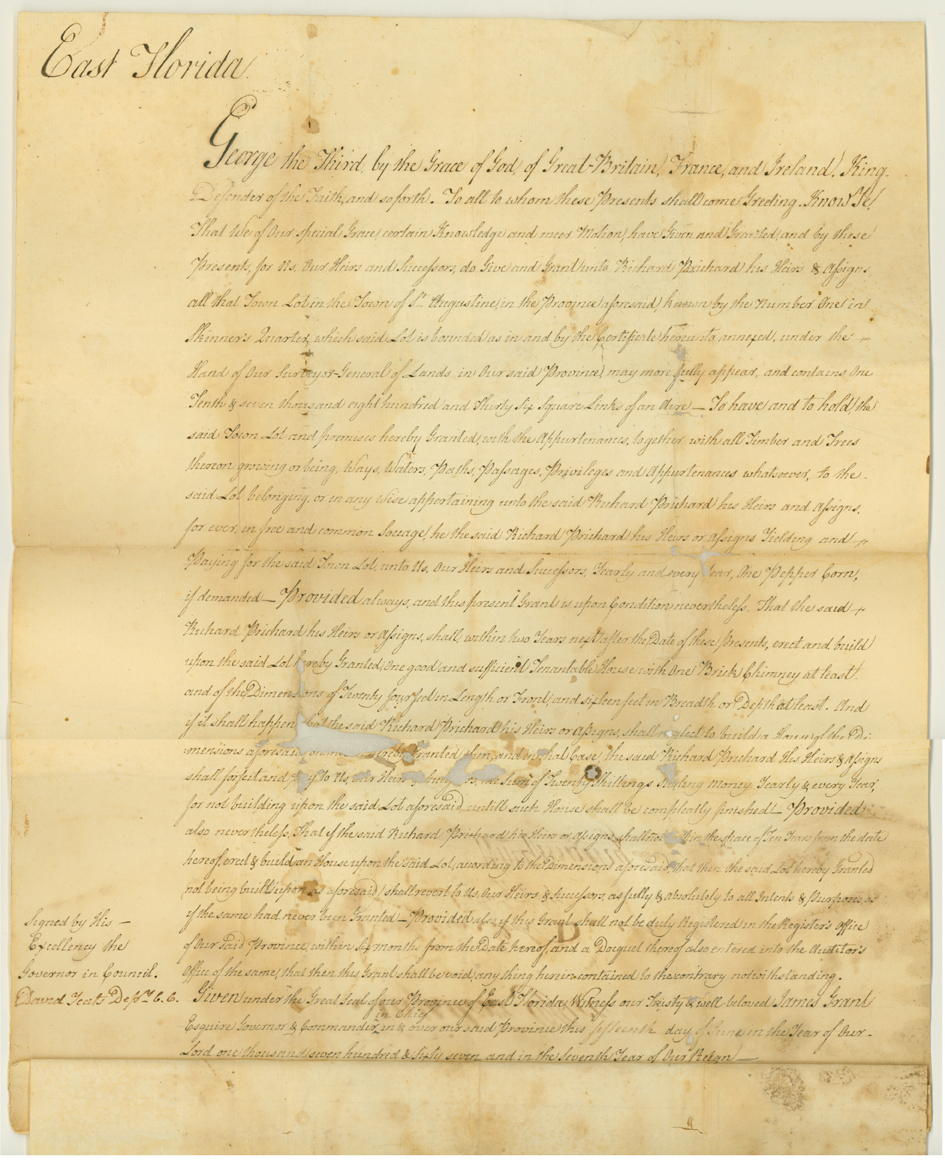 East Florida
George the Third, by the Grace of God, of Great-Britain, France, and Ireland, King
Defender of the Faith, and so forth. To all to whom these Presents shall come, Greeting. Know Ye,
That We of Our special Grace, certain Knowledge and meer Motion, have Given and Granted, and by these
Presents, for Us, Our Heirs and Successors, do Give and Grant unto Richard Prichard his Heirs & Assigns,
all that Town Lot in the Town of St. Augustine, in the Province aforesaid, known by the Number One in
Skinner's Quarter, which said Lot is bounded as in and by the Certificate hereunto annexed, under the
Hand of Our Surveyor-General of Lands, in Our said Province, may more fully appear, and contains One
Tenth & seven thousand eight hundred and Thirty Six Square Links of an Acre — To have and to hold, the
said Town Lot and premises hereby Granted, with the Appurtenances, together with all Timber and Trees
thereon growing or being, Ways, Waters, Paths, Passages, Privileges and Appurtenances whatsoever, to the
said Lot belonging, or in any wise appertaining unto the said Richard Prichard his Heirs and Assigns,
for ever, in free and common Soccage, he the said Richard Prichard his Heirs or Assigns Yielding and
Paying for the said Town Lot, unto Us, Our Heirs and Successors, Yearly and every Year, One Pepper Corn,
if demanded — Provided always, and this present Grant is upon Condition nevertheless. That the said
Richard Prichard his Heirs or Assigns, shall, within two Years next after the Date of these Presents, erect and build
upon the said Lot hereby Granted, One good and sufficient Tenantable House with One Brick Chimney at least
and of the Dimensions of Twenty four feet in Length or Front, and sixteen feet in Breadth or Depth at least. And
if it shall happen that the said Richard Prichard his Heirs or Assigns, shall neglect to build a House of the Di-
mensions aforesaid Granted then, and in that Case the said Richard Prichard His Heirs & Assigns
shall forfeit and pay to Us, our Heirs the Sum of Twenty Shillings Sterling Money Yearly & every Year,
for not building upon the said Lot aforesaid, untill such House shall be compleatly finished — Provided
also nevertheless, That if the said Richard Prichard his Heirs or Assigns shall not in the space of Ten Years from the date
hereof, erect & build an House upon the said Lot, according to the Dimensions aforesaid, that then the said Lot hereby Granted
not being built upon as aforesaid, shall revert to Us, Our Heirs & Successors, as fully & absolutely to all Intents & Purposes, as
if the same had never been Granted — Provided also, if this Grant shall not be duly Registered in the Register's Office
of Our said Province, within six months from the Date hereof, and a Docquet thereof also entered into the Auditor's
Office of the same, that then this Grant shall be void, any thing herein contained to the contrary notwithstanding.
Given under the Great Seal of our Province of East Florida, Witness our Trusty & well beloved James Grant
Esquire Governor & Commander in Chief in & over our said Province this fifteenth day of June in the Year of Our
Lord one thousand seven hundred & Sixty seven and in the Seventh Year of Our Reign —
Signed by His
Excellency the
Governor in Council.
David Yeats Depy. C.C.